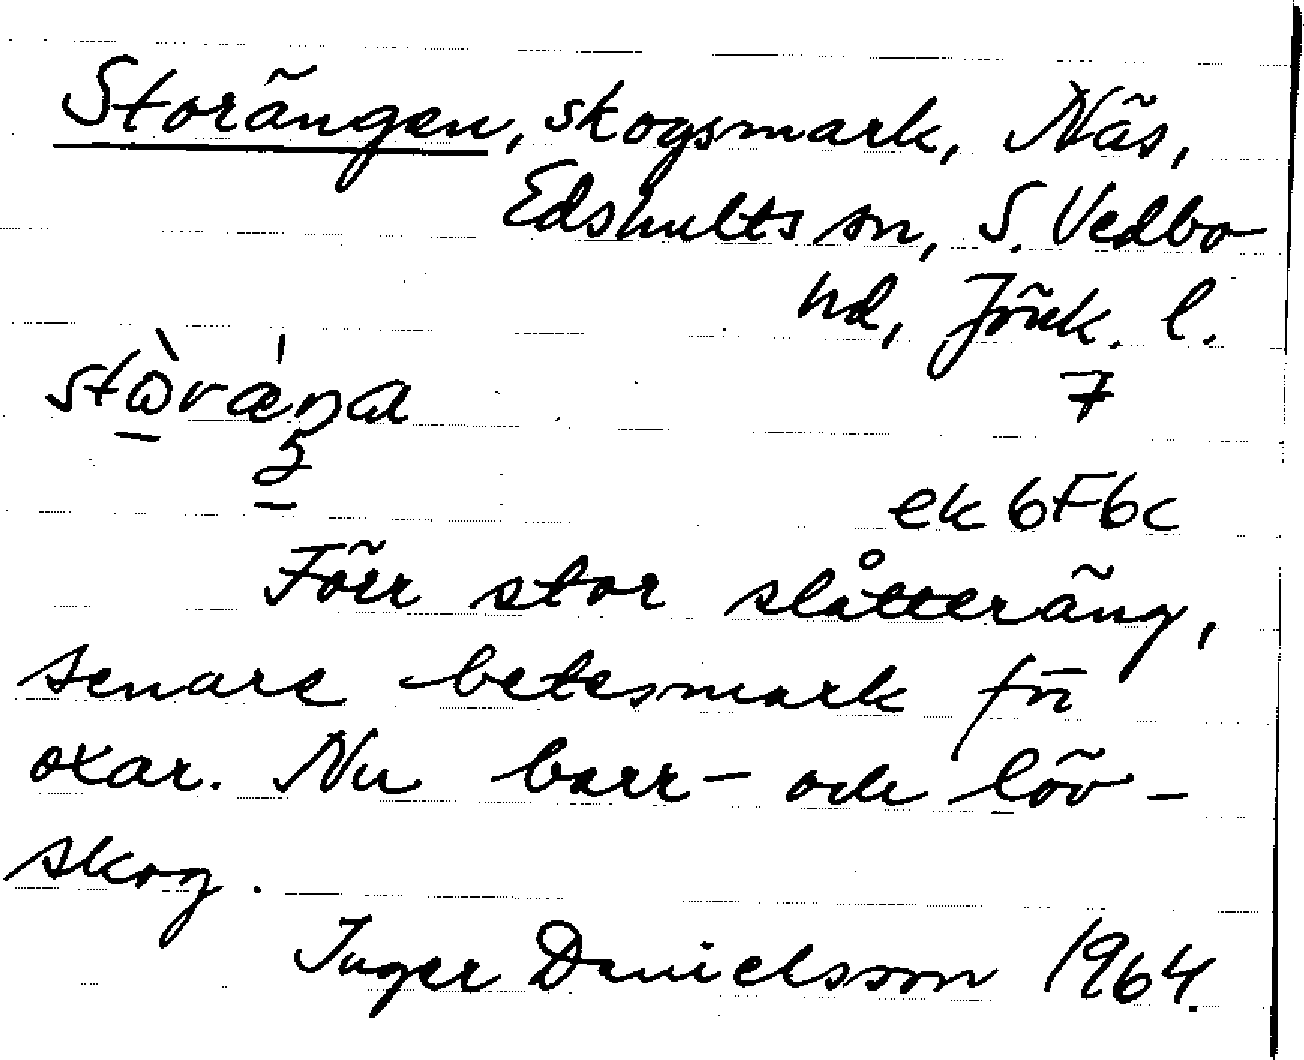 Storängen, skogsmark, Näs,
Edshults sn, S. Vedbo
hd, Jönk. l.
7
ek 6F6c
Förr stor slåtteräng,
senare betesmark för
oxar. Nu barr- och löv-
skog.
Inger Danielsson 1964.